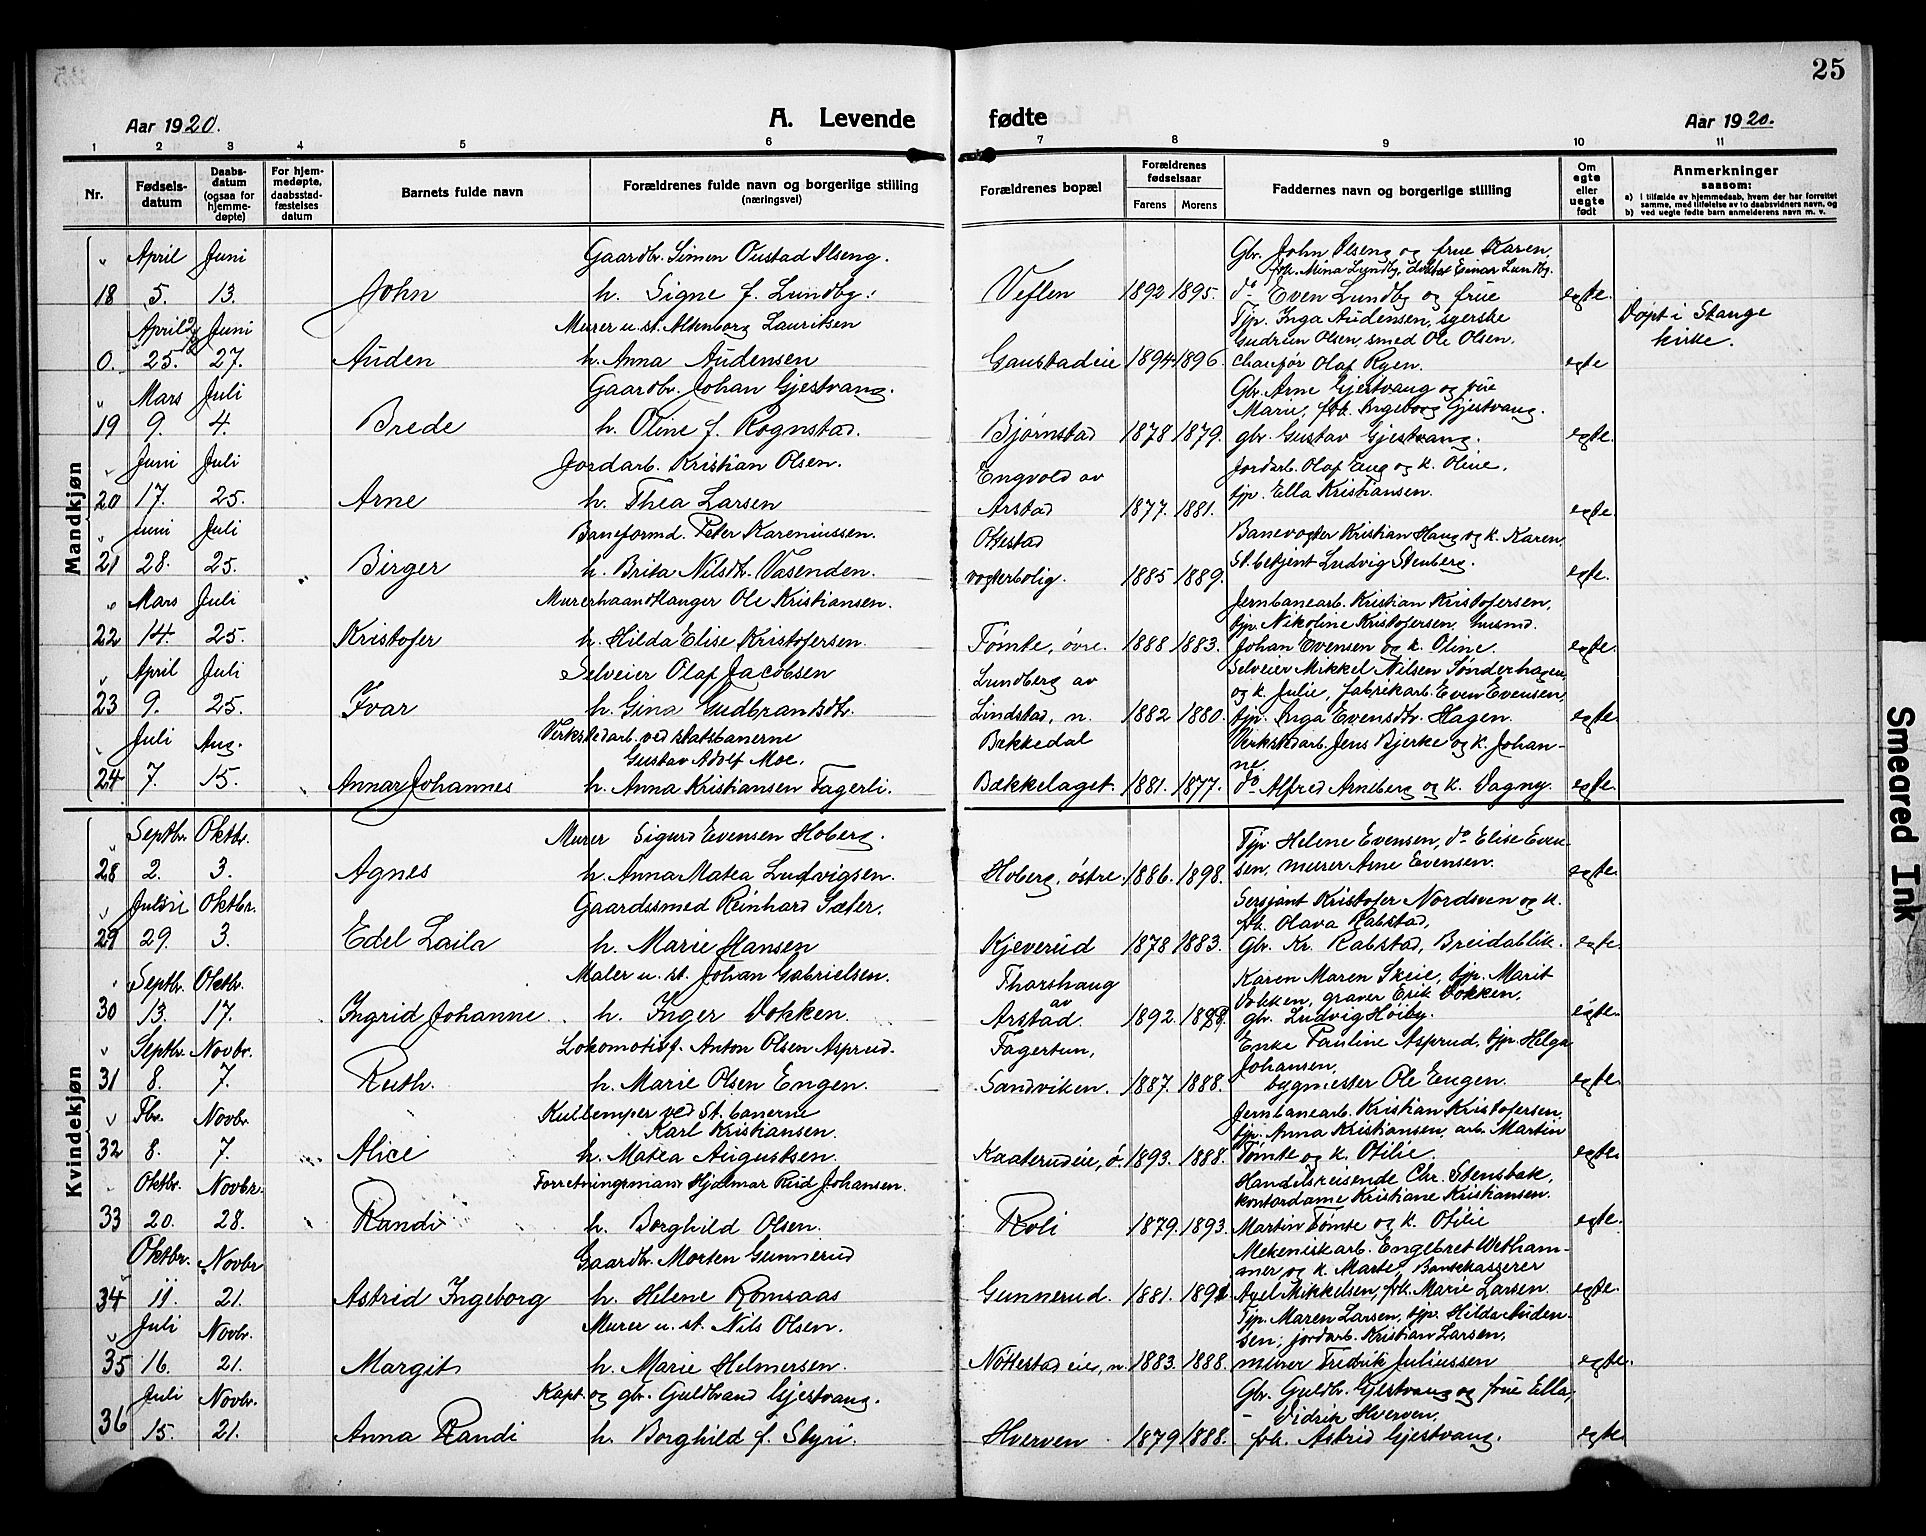 25
Aar 1920.
A. Levende fødte
Aar 1920.
1 2 3 4 5 6 7 8 9 10 11
Nr.
Fødsels-datum
Daabs-datum (ogsaa for hjemme-døpte)
For hjem-medøpte, daabsstad-fæstelses datum
Barnets fulde navn
Forældrenes fulde navn og borgerlige stilling (næringsvei)
Forældrenes bopæl
Forældrenes fødselsaar
Farens Morens
Faddernes navn og borgerlige stilling
Om egte eller uegte født
Anmerkninger saasom:
a) i tilfælde av hjemmedaab, hvem der har forrettet samme, med tilføielse av to daabsvidners navn, og
b) ved uegte fødte barn anmelderens navn m. v.
Mandkjøn
" April Juni Gaardbr. Simen Oustad Ilseng. Gbr. John Ilseng og frue Karen,
frk. Mina Lundby, Einar Lundby.
18 5. 13. John h. Signe f. Lundby. Veflen 1892 1895. do Even Lundby og frue egte.
April Juni Murer u. st. Altenborg Lauritsen Tjp. Inga Audensen, syerske
Gudrun Olsen, smed Ole Olsen,
0. 25. 27. Auden h. Anna Audensen Gaustadeie 1894 1896. chauffør Olaf Ryen. egte Døpt i Stange kirke.
" Mars Juli Gaardbr. Johan Gjestvang. Gbr. Arne Gjestvang og frue
Marie, frk. Ingeborg Gjestvang.
19 9. 4. Brede h. Oline f. Rognstad. Bjørnstad 1878 1879. gbr. Gustav Gjestvang. egte.
" Juni Juli Jordarb. Kristian Olsen. Engvold av Jordarb. Olaf Eng og k. Oline,
20 17. 25. Arne h. Thea Larsen Arstad 1877. 1881. tjp. Ella Kristiansen. egte.
" Juni Juli Baneformd. Peter Kareniussen. Ottestad Banevogter Kristian Haug og k. Karen,
21 28. 25. Birger h. Brita Nilsdtr. Vasenden. vogterbolig. 1885 1889. St.betjent Ludvig Stenberg. egte.
" Mars Juli Murerhaandlanger Ole Kristiansen. Jernbanearb. Kristian Kristofersen,
tjp. Nikoline Kristofersen, husmd.
22 14. 25. Kristofer h. Hilda Elise Kristofersen. Tømte, øvre. 1888 1883. Johan Evensen og k. Oline. egte.
" April Juli Selveier Olaf Jacobsen Lundberg av Selveier Mikkel Nilsen Sønderhagen,
og k. Julie, fabrikarb. Even Evensen,
23 9. 25. Ivar h. Gina Gudbrandsdtr. Lindstad, n. 1882 1880. tjp. Inga Evensdtr. Hagen. egte.
" Juli Aug. Verkstedarb. ved statsbanerne Gustav Adolf Moe. Bekkedal Verkstedarb. Jens Bjerke og k. Johan-
ne.
24 7. 15. Annar Johannes h. Anna Kristiansen Fagerli. Bækkelaget. 1881. 1877. do Alfred Arneberg og k. Dagny. egte.
Kvindekjøn
" Septbr. Oktbr. Murer Sigurd Evensen Hoberg. Tjp. Helene Evensen, do Elise Even-
28 2. 3. Agnes h. Anna Matea Ludvigsen. Hoberg, østre. 1886. 1898. sen, murer Arne Evensen. egte.
" Oktbr. Gaardssmed Reinhard Sæter. Sersjant Kristofer Nordsven og k.
frk. Olava Rabstad,
29 29. 3. Edel Laila h. Marie Hansen Kjeverud 1878 1883. Gbr. Kr. Rabstad, Breidablik. egte.
" Septbr. Oktbr. Maler u. st. Johan Gabrielsen. Thorshaug av Karen Maren Skeie, tjp. Marit
Dokken, graver Erik Dokken,
30 13. 17. Ingrid Johanne h. Inger Dokken. Arstad. 1892. gbr. Ludvig Høiby. egte.
" Septbr. Novbr. Lokomotivf. Anton Olsen Asprud. Fagertun, Enke Pauline Asprud, tjp. Helga
Johansen,
31 8. 7. Ruth. h. Marie Olsen Engen. Sandviken. 1887. 1888. bygmester Ole Engen. egte.
" Fbr. Novbr. Kullemper ved St.banerne Karl Kristiansen. Jernbanearb. Kristian Kristofersen,
tjp. Anna Kristiansen, arb. Martin
32 8. 7. Alice h. Matea Augustsen. Kaaterudeie, ø. 1893. 1888. Tømte og k. Otilie. egte.
" Oktbr. Novbr. Forretningsmann Hjalmar Rud Johansen. Handelsreisende Chr. Stensbak,
kontordame Kristiane Kristiansen.
33 20. 28. Randi h. Borghild Olsen. Roli 1879. 1893. Martin Tømte og k. Otilie egte.
Oktbr. Novbr. Gaardbr. Morten Gunnerud Mekeniskarb. Engebret Wetham-
mer og k. Marte, Bankkasserer
34 11. 21. Astrid Ingeborg h. Helene Romsaas Gunnerud. 1881. Axel Mikkelsen, frk. Marie Larsen. egte.
" Juli Novbr. Murer u. st. Nils Olsen. Tjp. Maren Larsen, tjp. Hilda Auden-
sen, jordarb. Kristian Larsen,
35 16. 21. Margit h. Marie Helmersen. Nøttestadeie, n. 1883. 1888. murer Fredrik Juliussen egte.
Juli Novbr. Kapt. og gbr. Guldbrand Gjestvang. Gbr. Guldbr. Gjestvang og frue Ella,
- Didrik Hverven,
36 15. 21. Anna Randi h. Borghild f. Styri. Hverven 1879 1888. frk. Astrid Gjestvang. egte
Smeared Ink